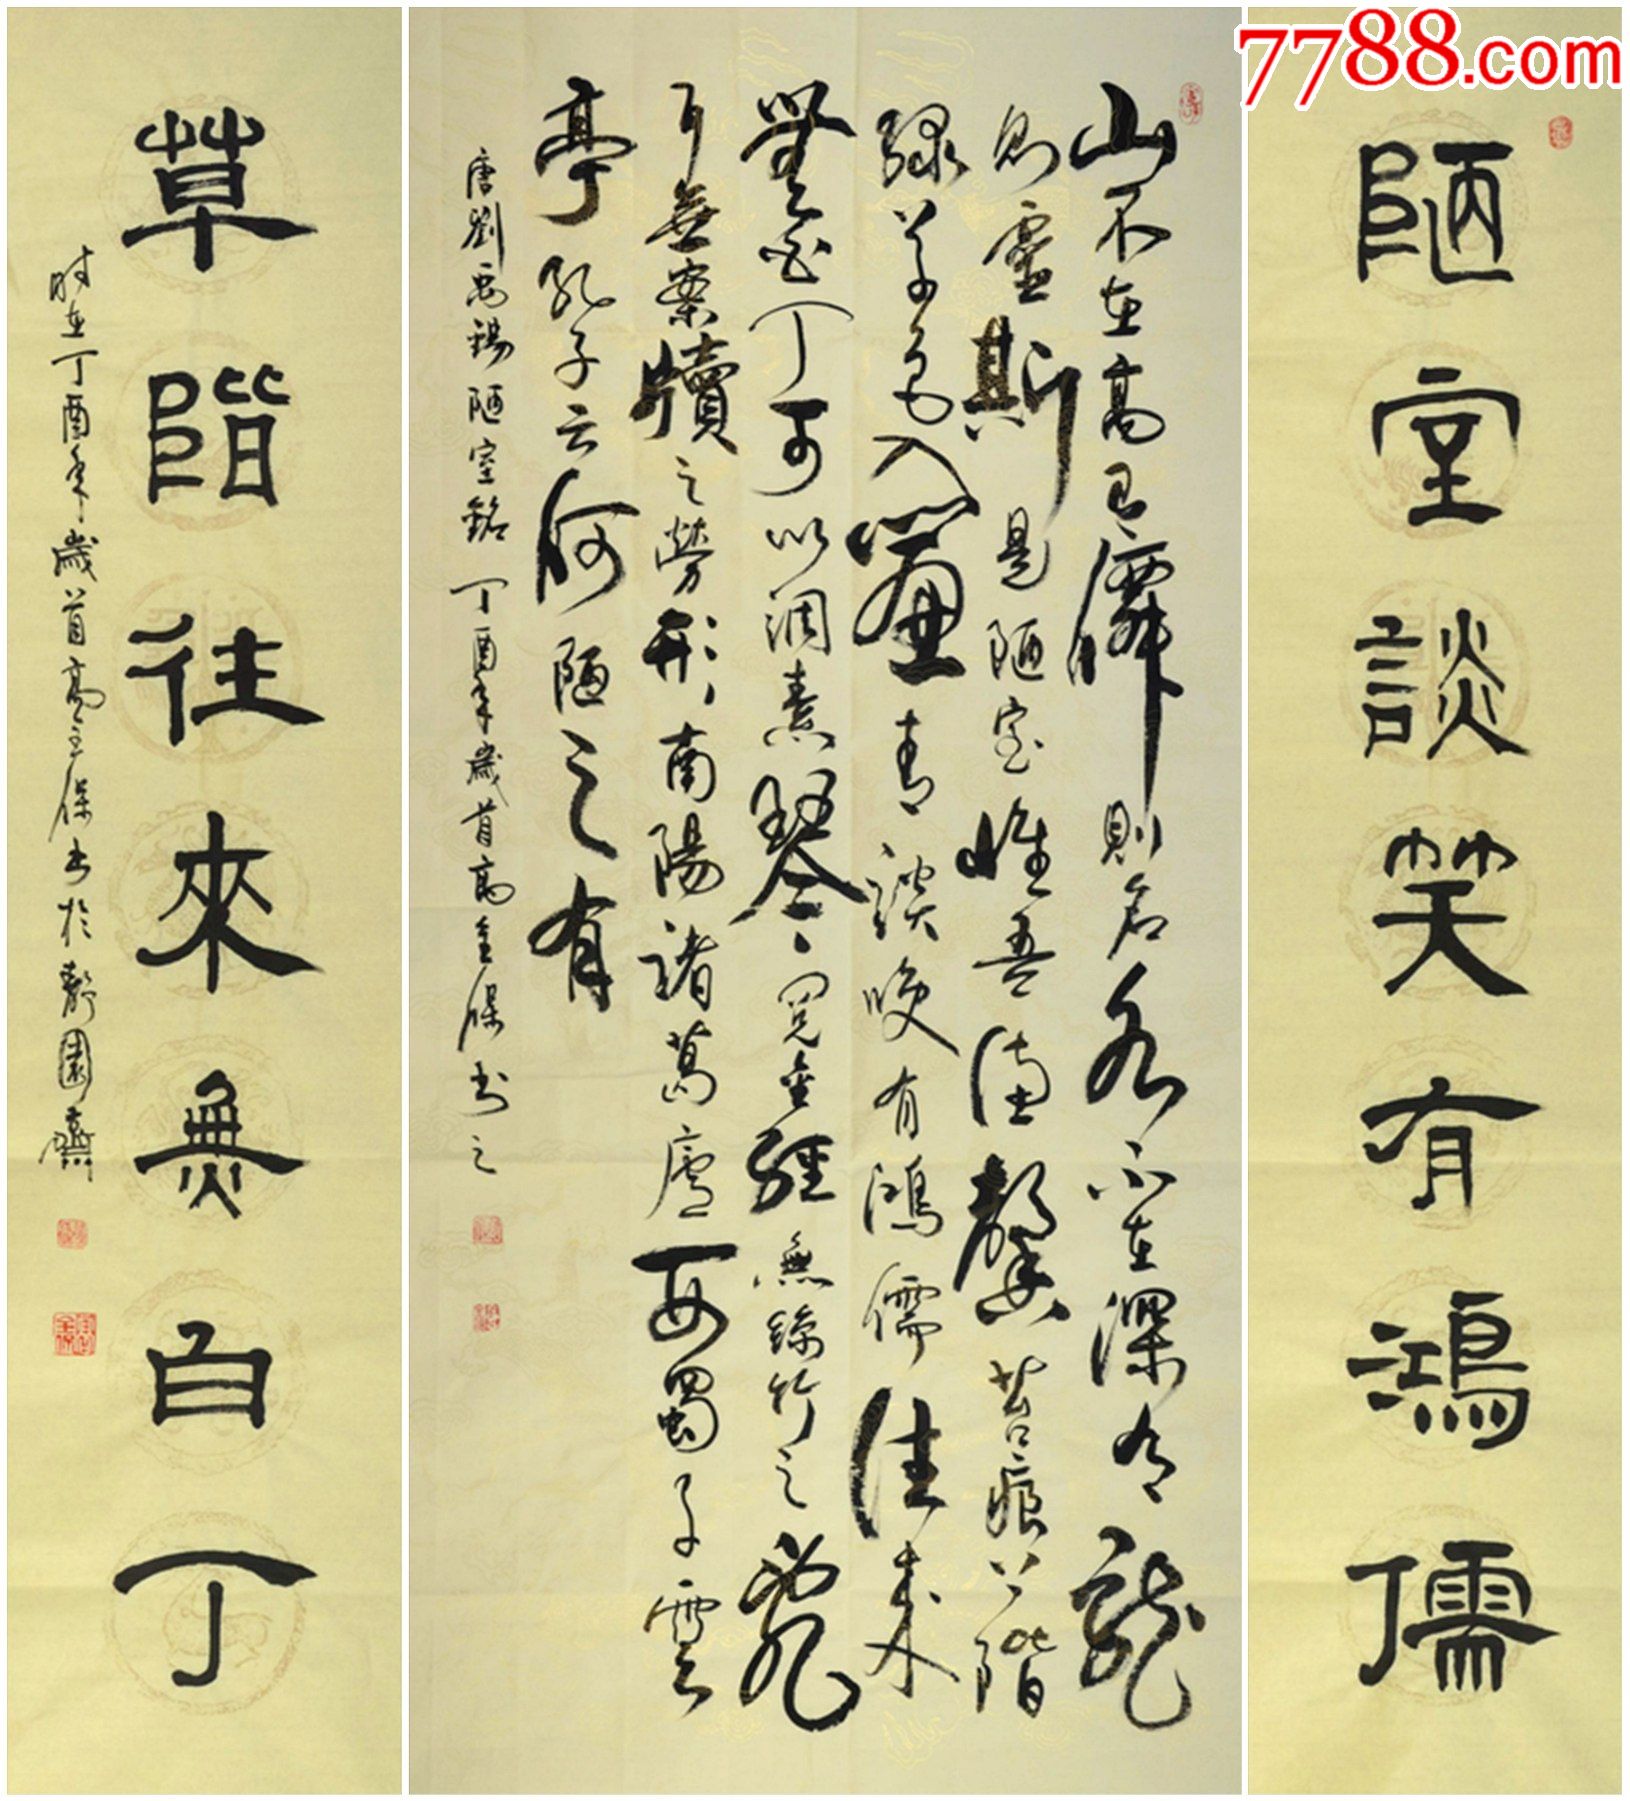 7788.com
陋室談笑有鴻儒
山不在高有僊則名水不在深有龍
則靈斯是陋室惟吾德馨苔痕上階
緑草色入簾青談笑有鴻儒往来
無白丁可以調素琴閲金經無絲竹之亂
耳無案牘之勞形南陽諸葛廬西蜀子雲
亭孔子云何陋之有
唐劉禹錫陋室銘 丁酉年歲首高保书之
草階往來無白丁
时在丁酉年歲首高保书於静園齋